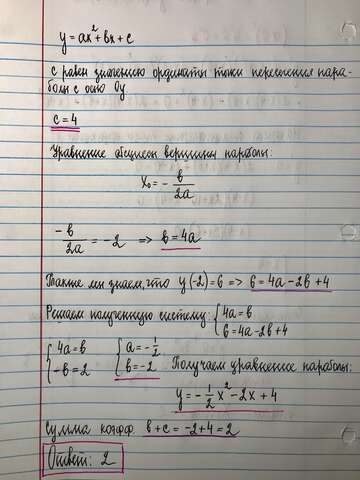 y = ax² + bx + c
c равен значению ординаты точки пересечения пара-
болы с осью Oy
c = 4
Уравнение абсциссы вершины параболы:
x₀ = - b/2a
-b/2a = -2 => b = 4a
Также мы знаем, что y(-2) = 6 => 6 = 4a - 2b + 4
Решаем полученную систему: { 4a = b
6 = 4a - 2b + 4
{ 4a = b { a = -1/2
-b = 2 b = -2 Получаем уравнение параболы:
y = - 1/2 x² - 2x + 4
Сумма коэфф. b + c = -2 + 4 = 2
Ответ: 2